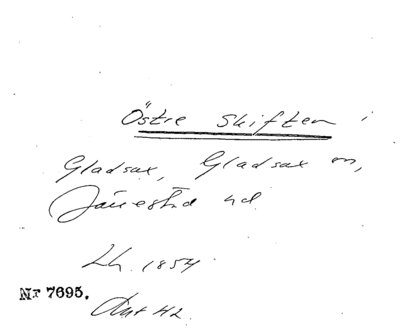 Östre Skiften i
Gladsax, Gladsax sn,
Järrestad hd.
Lh. 1854.
Nr 7695.